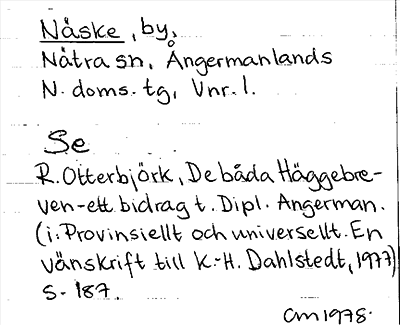 Näske, by,
Nätra sn, Ångermanlands
N. doms. tg, Vnr. 1.
Se
R. Otterbjörk, De båda Häggebre-
ven - ett bidrag t. Dipl. Angerman.
(i: Provinsiellt och universellt. En
vänskrift till K.-H. Dahlstedt, 1977)
s. 187.
Cm 1978.